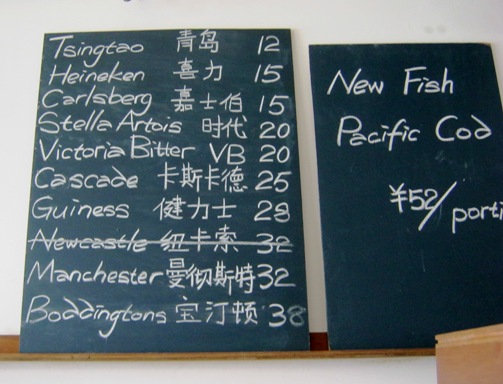 Tsingtao 青岛 12
Heineken 喜力 15
Carlsberg 嘉士伯 15
Stella Artois 时代 20
Victoria Bitter VB 20
Cascade 卡斯卡德 25
Guiness 健力士 28
Newcastle 纽卡索 32
Manchester 曼彻斯特 32
Boddingtons 宝汀顿 38
New Fish
Pacific Cod
¥52/porti